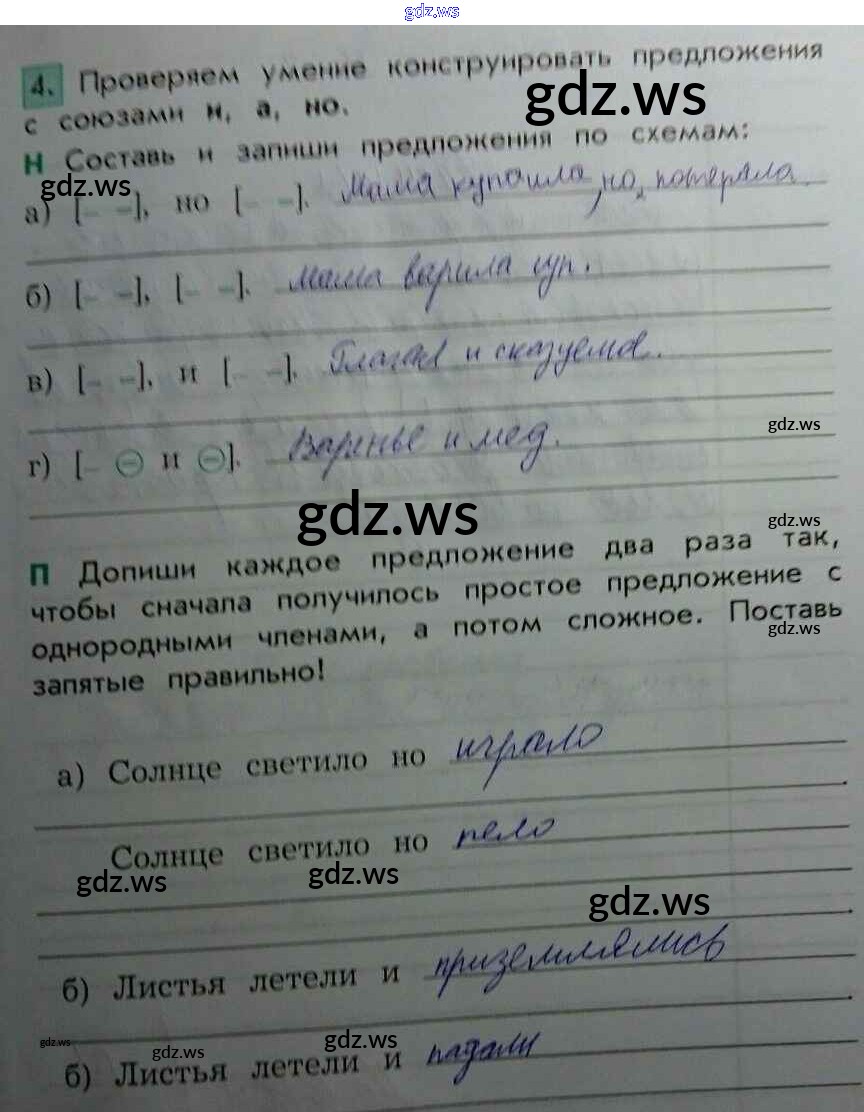 gdz.ws
4. Проверяем умение конструировать предложения
с союзами и, а, но.
gdz.ws
Н Составь и запиши предложения по схемам:
gdz.ws
а) [– –], но [– –]. Мама купаила, но, потеряла.
б) [– –], [– –]. Мама варила суп.
в) [– –], и [– –]. Глагол и сказуемое.
gdz.ws
г) [– ⊖ и ⊖]. Варенье и мед.
gdz.ws
gdz.ws
П Допиши каждое предложение два раза так,
чтобы сначала получилось простое предложение с
однородными членами, а потом сложное. Поставь
gdz.ws
запятые правильно!
а) Солнце светило но играло
Солнце светило но пело
gdz.ws
gdz.ws
gdz.ws
б) Листья летели и приземлялись
gdz.ws
gdz.ws
gdz.ws
б) Листья летели и падали